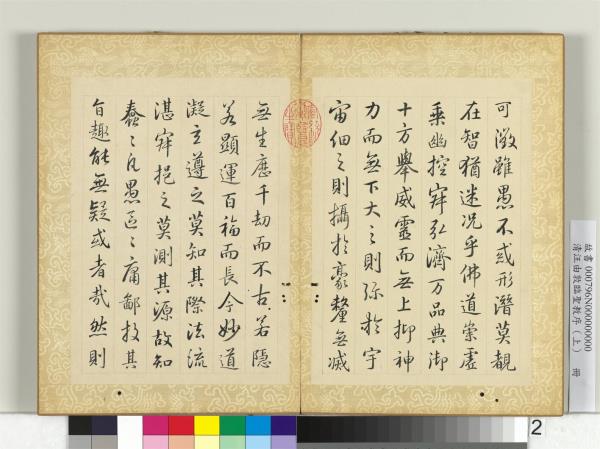 可徵雖愚不或形潛莫覩
在智猶迷况乎佛道崇虛
乘幽控寂弘濟万品典御
十方舉威靈而無上抑神
力而無下大之則弥於宇
宙細之則攝於豪釐無滅
無生歷千劫而不古若隱
若顯運百福而長今妙道
凝玄遵之莫知其際法流
湛寂挹之莫測其源故知
蠢〻凡愚區〻庸鄙投其
旨趣能無疑或者哉然則
故書000796N000000000
清汪由敦臨聖教序（上）　冊
2